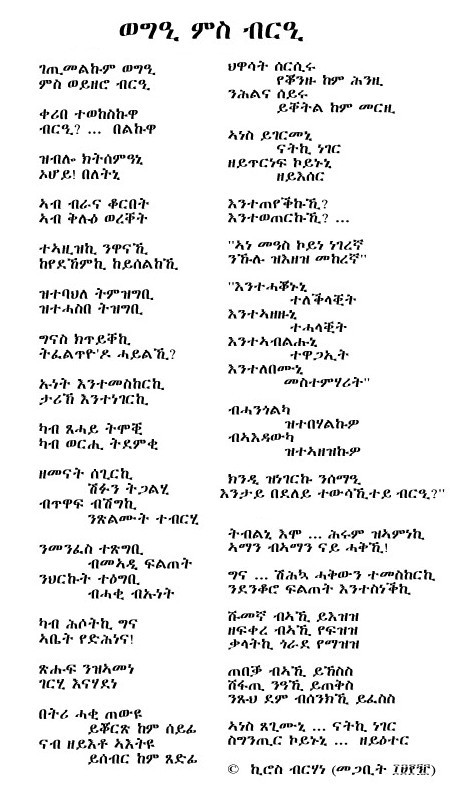 ወግዒ ምስ ብርዒ
ገጢመልኩም ወግዒ
ምስ ወይዘሮ ብርዒ
ቀሪበ ተወከስኩዋ
ብርዒ? ... በልኩዋ
ዝብሎ ክትሰምዓኒ
ኦሆይ! በለትኒ
ኣብ ብራና ቆርበት
ኣብ ቅሉዕ ወረቐት
ተኣዚዝኪ ንዋናኺ
ከየደኸምኪ ከይሰልከኺ
ዝተባህለ ትምዝግቢ
ዝተሓስበ ትዝግቢ
ግናስ ክጥይቐኪ
ትፈልጥዮ'ዶ ሓይልኺ?
ኡነት እንተመስከርኪ
ታሪኽ እንተነገርኪ
ካብ ጸሓይ ትሞቒ
ካብ ወርሒ ትደምቂ
ዘመናት ሰጊርኪ
ሽፉን ትጋልሂ
ብጥዋፍ ብሽግኪ
ንጽልሙት ተብርሂ
ንመንፈስ ተጽግቢ
ብመኣዲ ፍልጠት
ንህርኩት ተዕግቢ
ብሓቂ ብኡነት
ካብ ሕሶትኪ ግና
ኣቤት የድሕነና!
ጽሑፍ ንዝኣመነ
ገርሂ እናሃደነ
በትሪ ሓቂ ጠውዩ
ይቖርጽ ከም ሰይፊ
ናብ ዘይእቶ ኣእትዩ
ይሰብር ከም ጸድፊ
ህዋሳት ሰርሲሩ
የቖንዙ ከም ሕንዚ
ንሕልና ሰይሩ
ይቐትል ከም መርዚ
ኣነስ ይገርመኒ
ናትኪ ነገር
ዘይጥርነፍ ኮይኑኒ
ዘይእሰር
እንተጠየቕኩኺ?
እንተወጠርኩኺ? ...
"ኣነ መዓስ ኮይነ ነገረኛ
ንኹሉ ዝእዘዝ መከረኛ"
"እንተሓቖኑኒ
ተለቕላቒት
እንተኣዘዙኒ
ተሓላቒት
እንተኣብልሑኒ
ተዋጋኢት
እንተለበሙኒ
መስተምሃሪት"
ብሓንጎልካ
ዝተበሃልኩዎ
ብኣእዳውካ
ዝተኣዘዝኩዎ
ክንዲ ዝነገርኩ ንሰማዒ
እንታይ በደለይ ተውሳኺተይ ብርዒ?"
ትብልኒ እሞ ... ሕሩም ዝኣምነኪ
ኣማን ብኣማን ናይ ሓቅኺ!
ግና ... ሽሕኳ ሓቅውን ተመስከርኪ
ንደንቆሮ ፍልጠት እንተስነቕኪ
ሹመኛ ብኣኺ ይእዝዝ
ዘፍቀረ ብኣኺ የፍዝዝ
ቃላትኪ ጎራደ የማዝዝ
ጠበቓ ብኣኺ ይኸስስ
ሽፋጢ ንዓኺ ይጠቅስ
ንጹህ ደም ብሰንክኺ ይፈስስ
ኣነስ ጸጊሙኒ ... ናትኪ ነገር
ስግንጢር ኮይኑኒ ... ዘይዕተር
© ኪሮስ ብርሃነ (መጋቢት